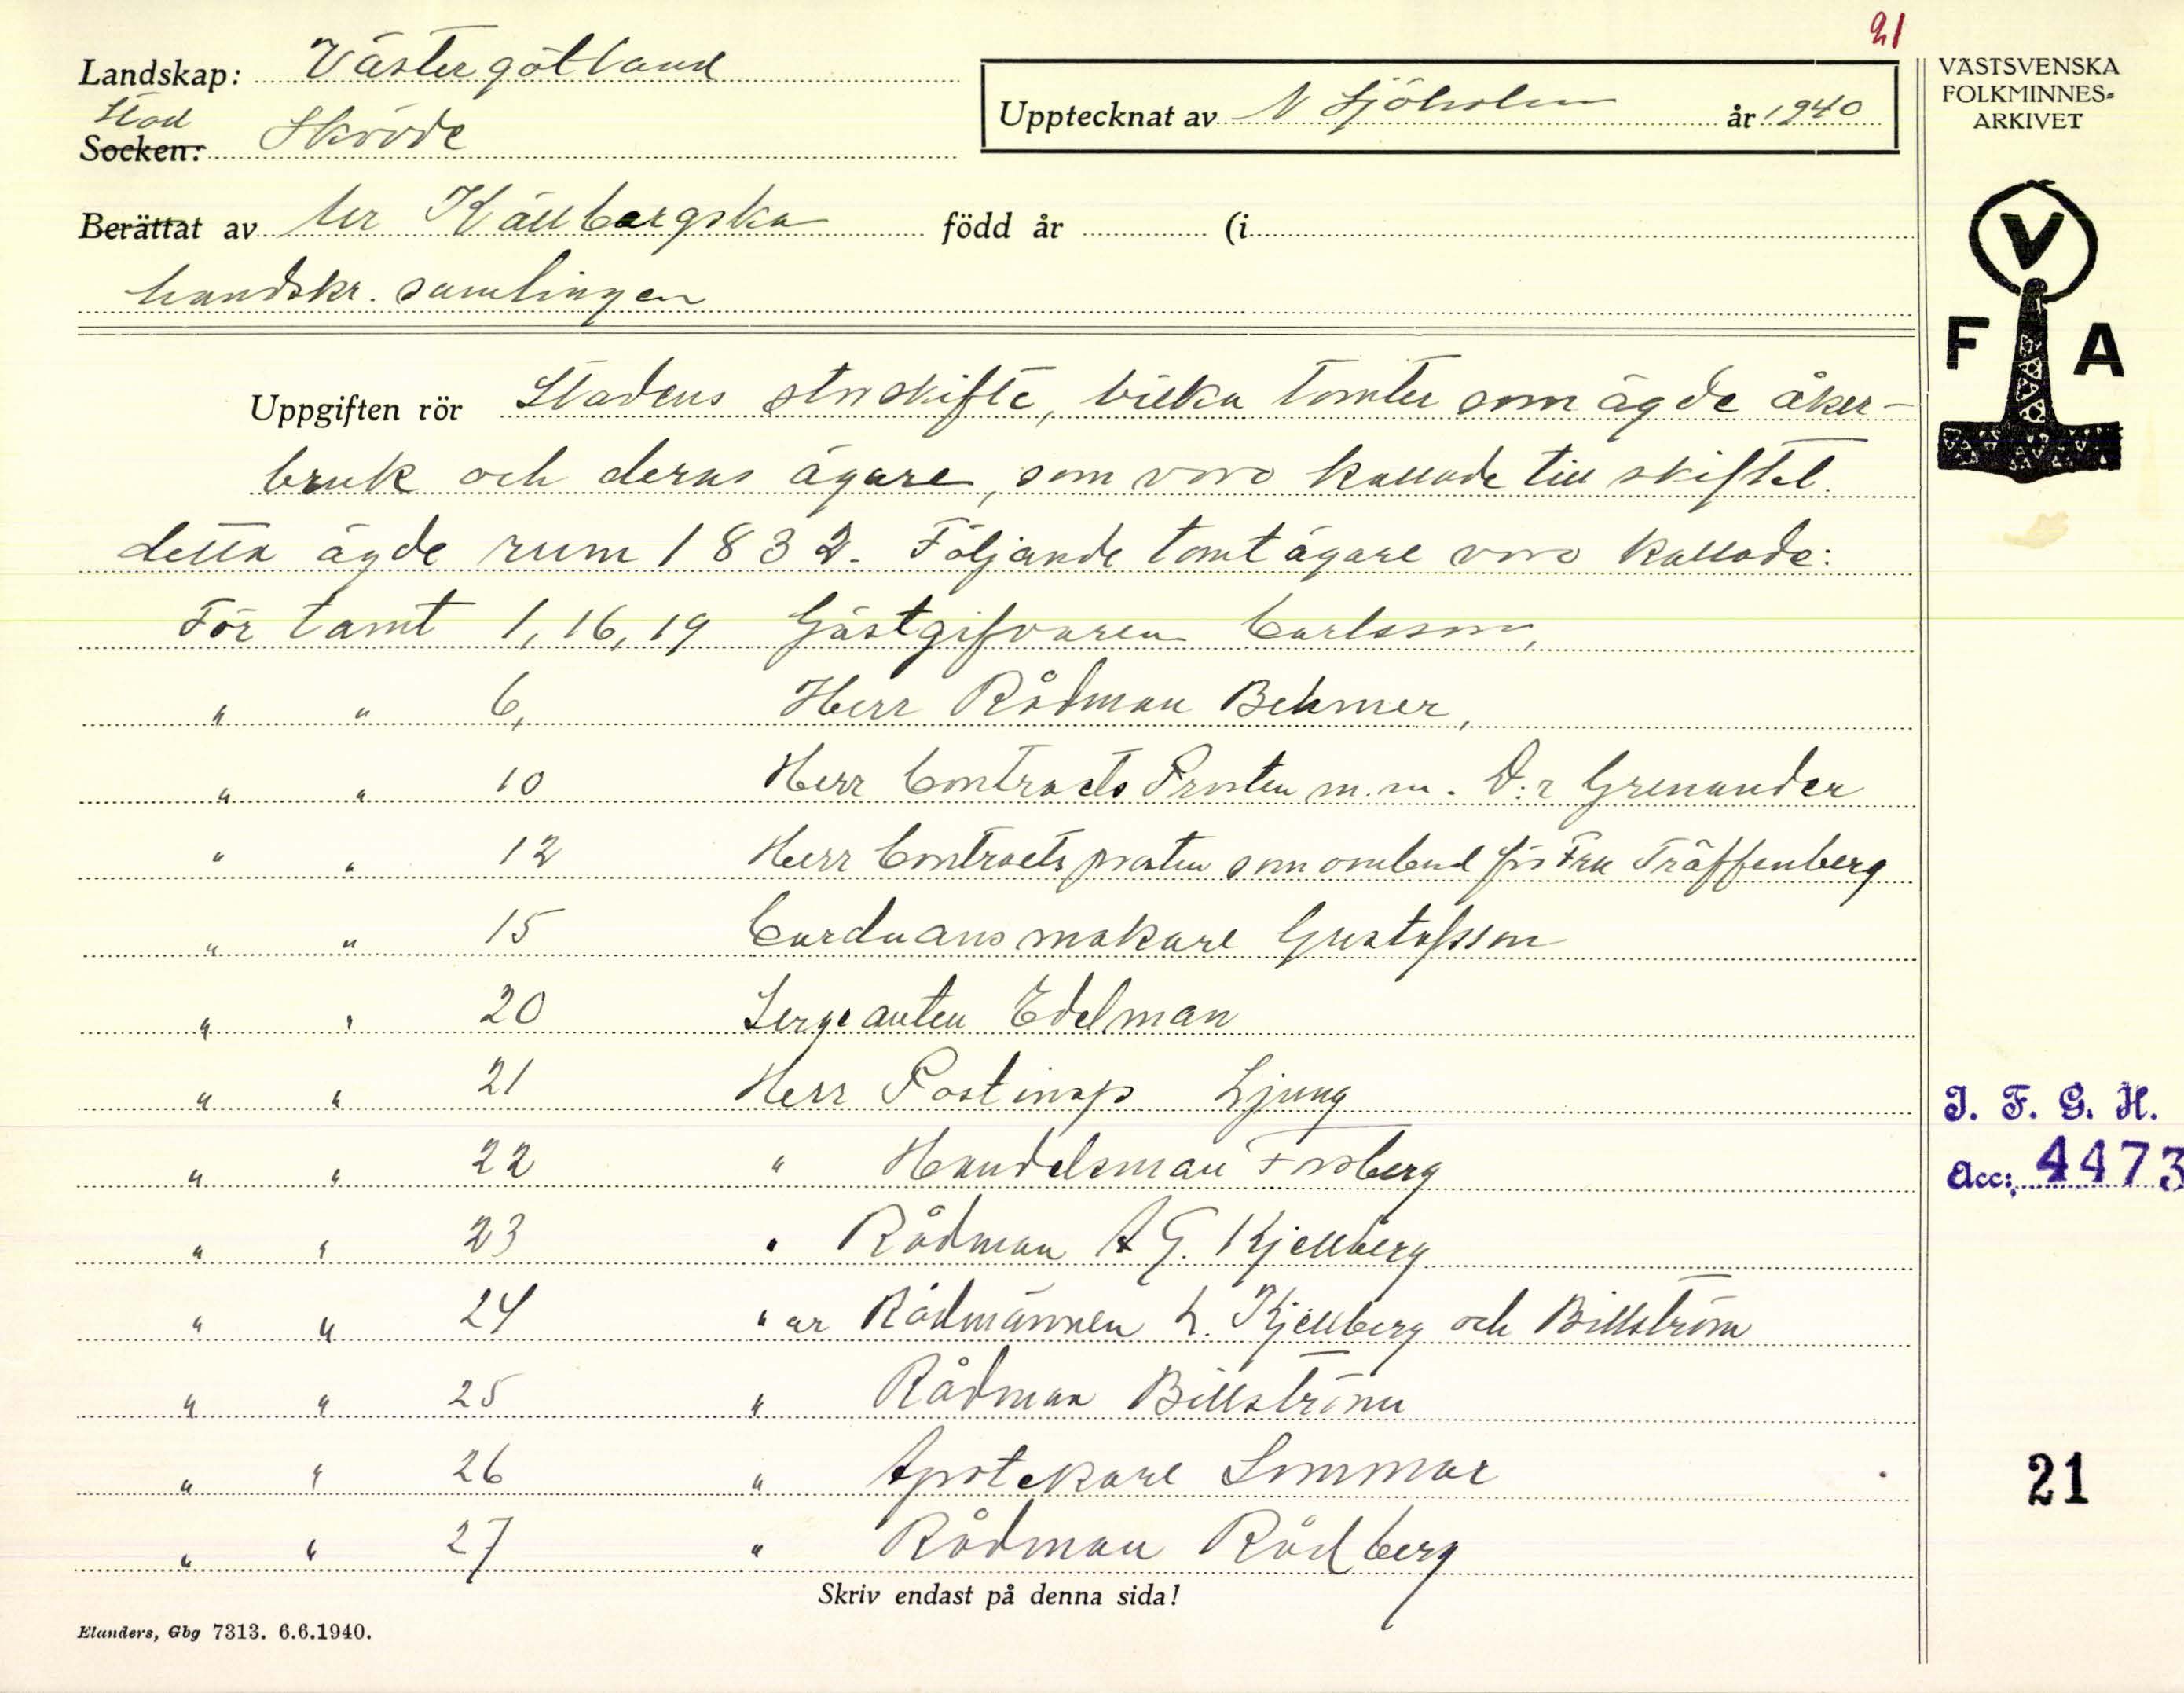 21
Landskap: Västergötland
Stad
Socken: Skövde
Upptecknat av N Sjöholm år 1940
VÄSTSVENSKA
FOLKMINNES-
ARKIVET
Berättat av ur Källbergska född år (i
handskr. samlingen
V
F A
Uppgiften rör Stadens storskifte, vilka tomter som ägde åker-
bruk och deras ägare, som voro kallade till skiftet.
detta ägde rum 1832. Följande tomtägare voro kallade:
För tomt 1, 16, 19 Gästgifvaren Carlsson,
" " 6, Herr Rådman Behmer,
" " 10 Herr Contracts Prosten m.m. D:r Grenander
" " 12 Herr Contractsprosten som ombud för Fru Träffenberg
" " 15 Carduansmakare Gustafsson
" " 20 Sergeanten Edelman
" " 21 Herr Postinsp Ljung
" " 22 " Handelsman Froberg
" " 23 " Rådman A G. Kjellberg
" " 24 " ar Rådmännen L. Kjellberg och Billström
" " 25 " Rådman Billström
" " 26 " Apotekare Sommar
" " 27 " Rådman Rådberg
I. F. G. H.
Acc: 4473
21
Skriv endast på denna sida!
Elanders, Gbg 7313. 6.6.1940.